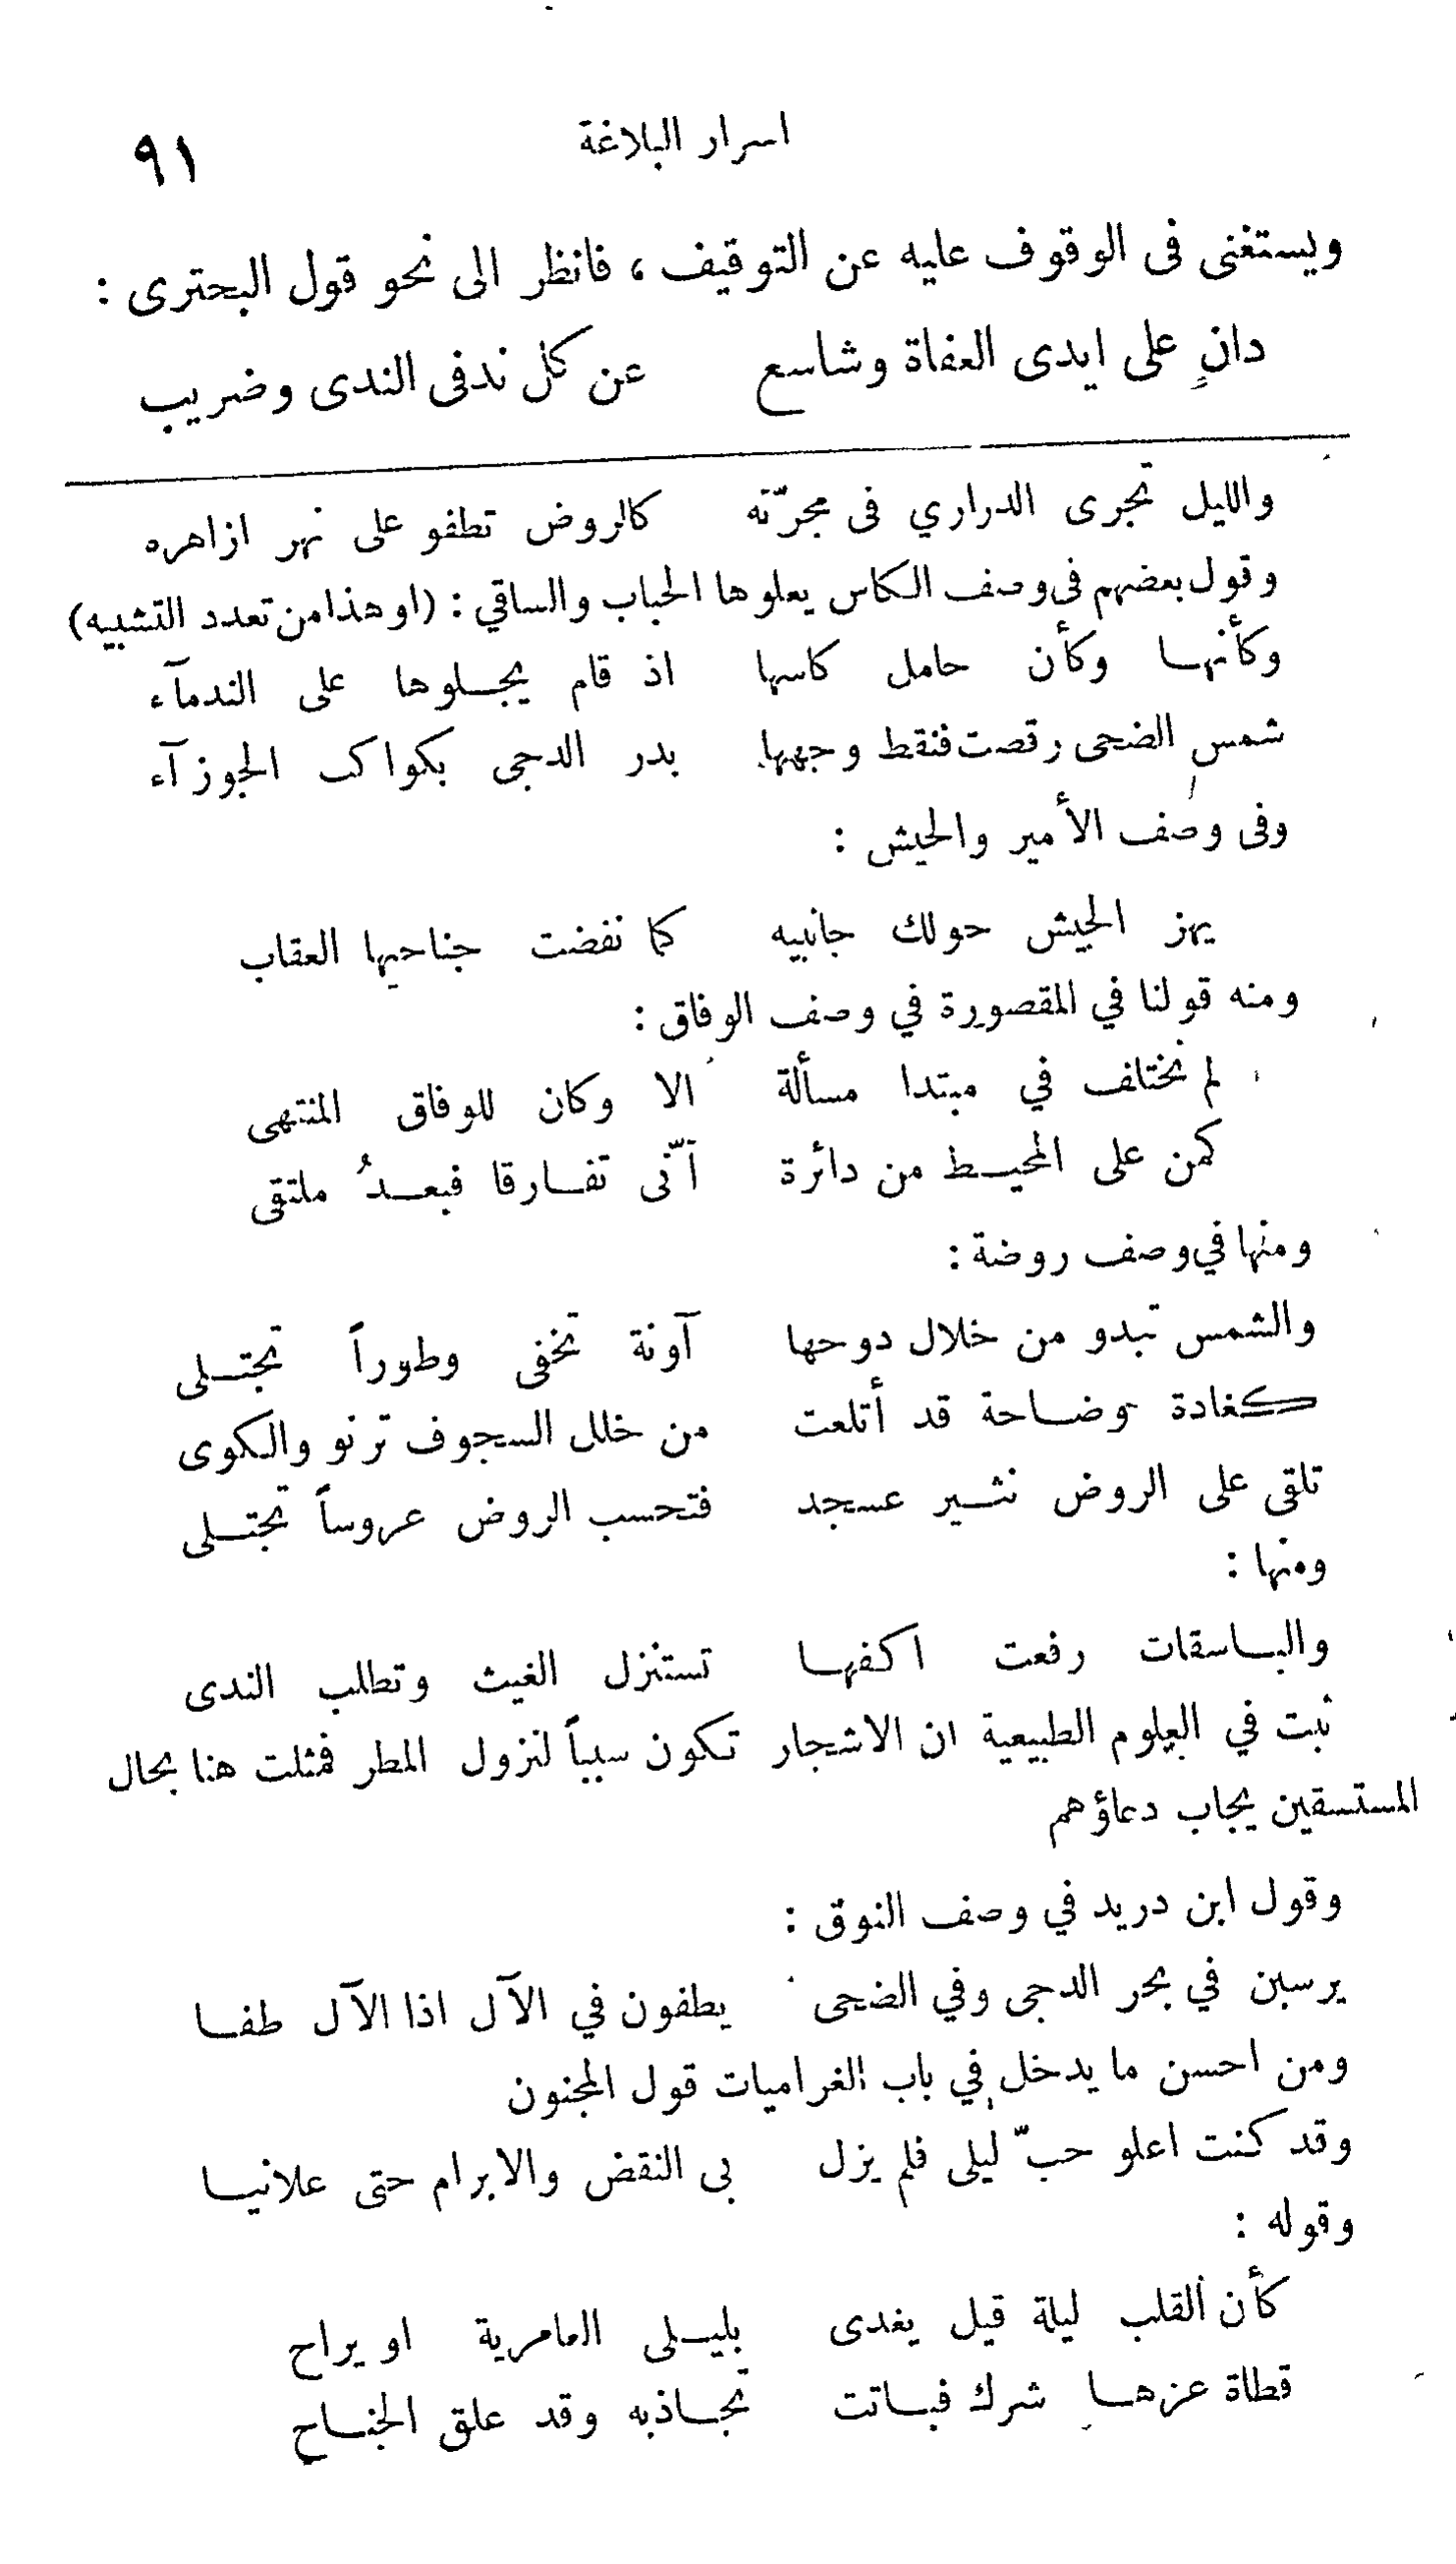 اسرار البلاغة ٩١
ويستغنى فى الوقوف عليه عن التوقيف ، فانظر الى نحو قول البحترى :
دانٍ على ايدى العفاة وشاسع عن كل ند فى الندى وضريب
والليل تجرى الدراري فى مجرّته كالروض تطفو على نهر ازاهره
وقول بعضهم فى وصف الكاس يعلوها الحباب والساقي : (او هذا من تعدد التشبيه)
وكأنهـا وكأن حامل كاسها اذ قام يجـلوها على الندمآء
شمس الضحى رقصت فنقط وجهها بدر الدجى بكواكب الجوزآء
وفى وصف الأمير والجيش :
يهز الجيش حولك جانبيه كما نفضت جناحيها العقاب
ومنه قولنا في المقصورة في وصف الوفاق :
لم نختلف في مبتدا مسألة الا وكان للوفاق المنتهى
كمن على المحيـط من دائرة أنّى تفـارقا فبعـدُ ملتقى
ومنها في وصف روضة :
والشمس تبدو من خلال دوحها آونة تخفى وطوراً تجتـلى
كغادة وضـاحة قد أتلعت من خلل السجوف ترنو والكوى
تلقي على الروض نثـير عسجد فتحسب الروض عروساً تجتـلى
ومنها :
والبـاسقات رفعت اكفهـا تستنزل الغيث وتطلب الندى
ثبت في العلوم الطبيعية ان الاشجار تكون سبباً لنزول المطر فمثلت هنا بحال
المستسقين يجاب دعاؤهم
وقول ابن دريد في وصف النوق :
يرسبن في بحر الدجى وفي الضحى يطفون في الآل اذا الآل طفـا
ومن احسن ما يدخل في باب الغراميات قول المجنون
وقد كنت اعلو حبّ ليلى فلم يزل بى النقض والابرام حتى علانيـا
وقوله :
كأن القلب ليلة قيل يغدى بليـلى العامرية او يراح
قطاة عزهـا شرك فبـاتت تجـاذبه وقد علق الجنـاح